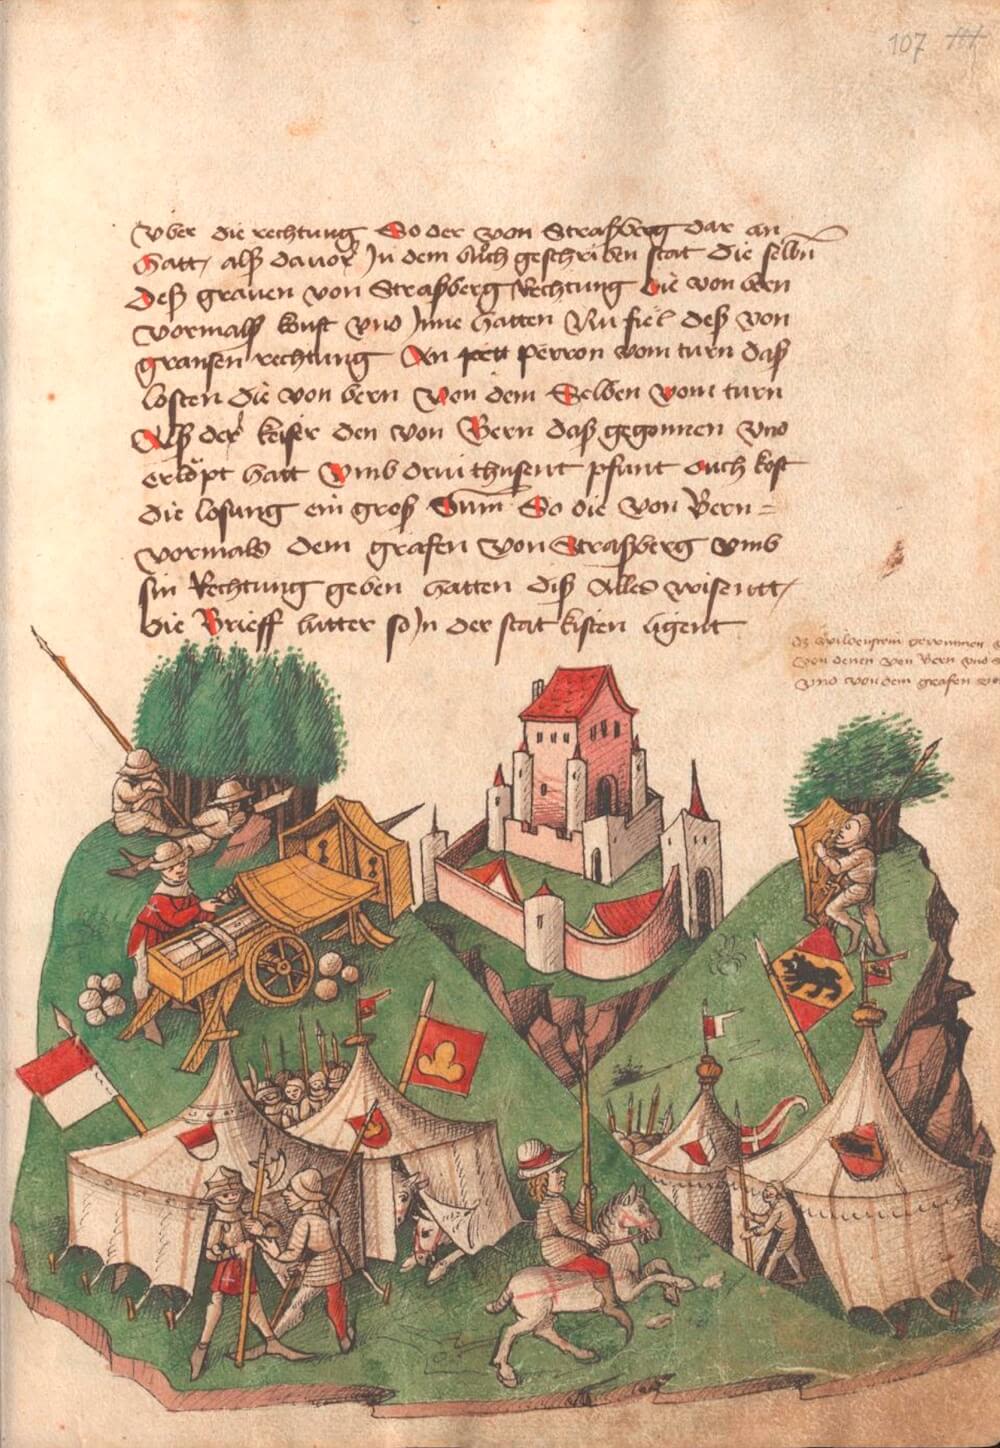 107
Vber die rechtung So der von Straßberg dar an
Hatt / alß dauor Jn dem buch geschriben stat Die selbn
Deß grauen von Straßberg Rechtung Die von bern
vormalß konft vnd Jnne Hatten Nu fiel deß von
gransen rechtung An perron vom turn daß
losten die von bern Von dem Selben vom turn
Alß der keiser den von Bern daß gegonnen vnd
erlopt hatt Vmb druu thusent pfunt Ouch kost
die losung ein groß Sum So die von Bern =
vormals dem grafen von Straßberg vmb
sin Rechtung geben hatten diß Alles wisentt /
Die Brieff lutter so Jn der stat kisten ligent
Dz wildenstein gewunnen
von denen von Bern vnd
vnd von dem grafen von